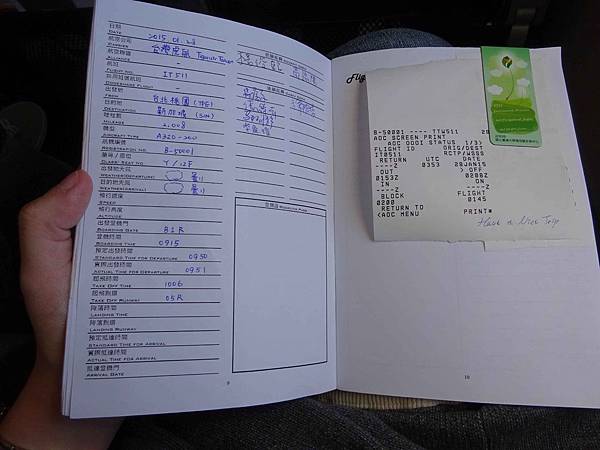 日期
DATE 2015.01.28
航空公司
CARRIER 台灣虎航 Tigerair Taiwan
航空聯盟
ALLIANCE -
航班
FLIGHT NO. IT511
共用班號航班
CODESHARE FLIGHT -
出發地
FROM 台北桃園 (TPE)
目的地
DESTINATION 新加坡 (SIN)
哩程數
MILEAGE 2,008
機型
AIRCRAFT TYPE A320-200
飛機編號
REGISTRATION NO. B-50001
艙等/座位
CLASS/ SEAT NO. Y / 12F
出發地天氣
WEATHER(DEPARTURE)
目的地天氣
WEATHER(ARRIVAL)
飛行速度
SPEED
飛行高度
ALTITUDE
出發登機門
DEPARTURE GATE B1R
登機時間
BOARDING TIME 0915
預定出發時間
STANDARD TIME FOR DEPARTURE 0950
實際出發時間
ACTUAL TIME FOR DEPARTURE 0951
起飛時間
TAKE OFF TIME 1006
起飛跑道
TAKE OFF RUNWAY 05R
降落時間
LANDING TIME
降落跑道
LANDING RUNWAY
預定抵達時間
STANDARD TIME FOR ARRIVAL
實際抵達時間
ACTUAL TIME FOR ARRIVAL
抵達登機門
ARRIVAL GATE
9
B-50001 ---- TTW511 28
AOC SCREEN PRINT
AOC OOOI STATUS 1/3>
FLIGHT ID ORIG/DEST
IT0511 RCTP/WSSS
RETURN UTC DATE
----Z 0353 28JAN15
OUT > OFF
0153Z 0208Z
IN ON
----Z ----Z
BLOCK FLIGHT
0200 0145
RETURN TO
<AOC MENU PRINT*
Have a Nice Trip
10